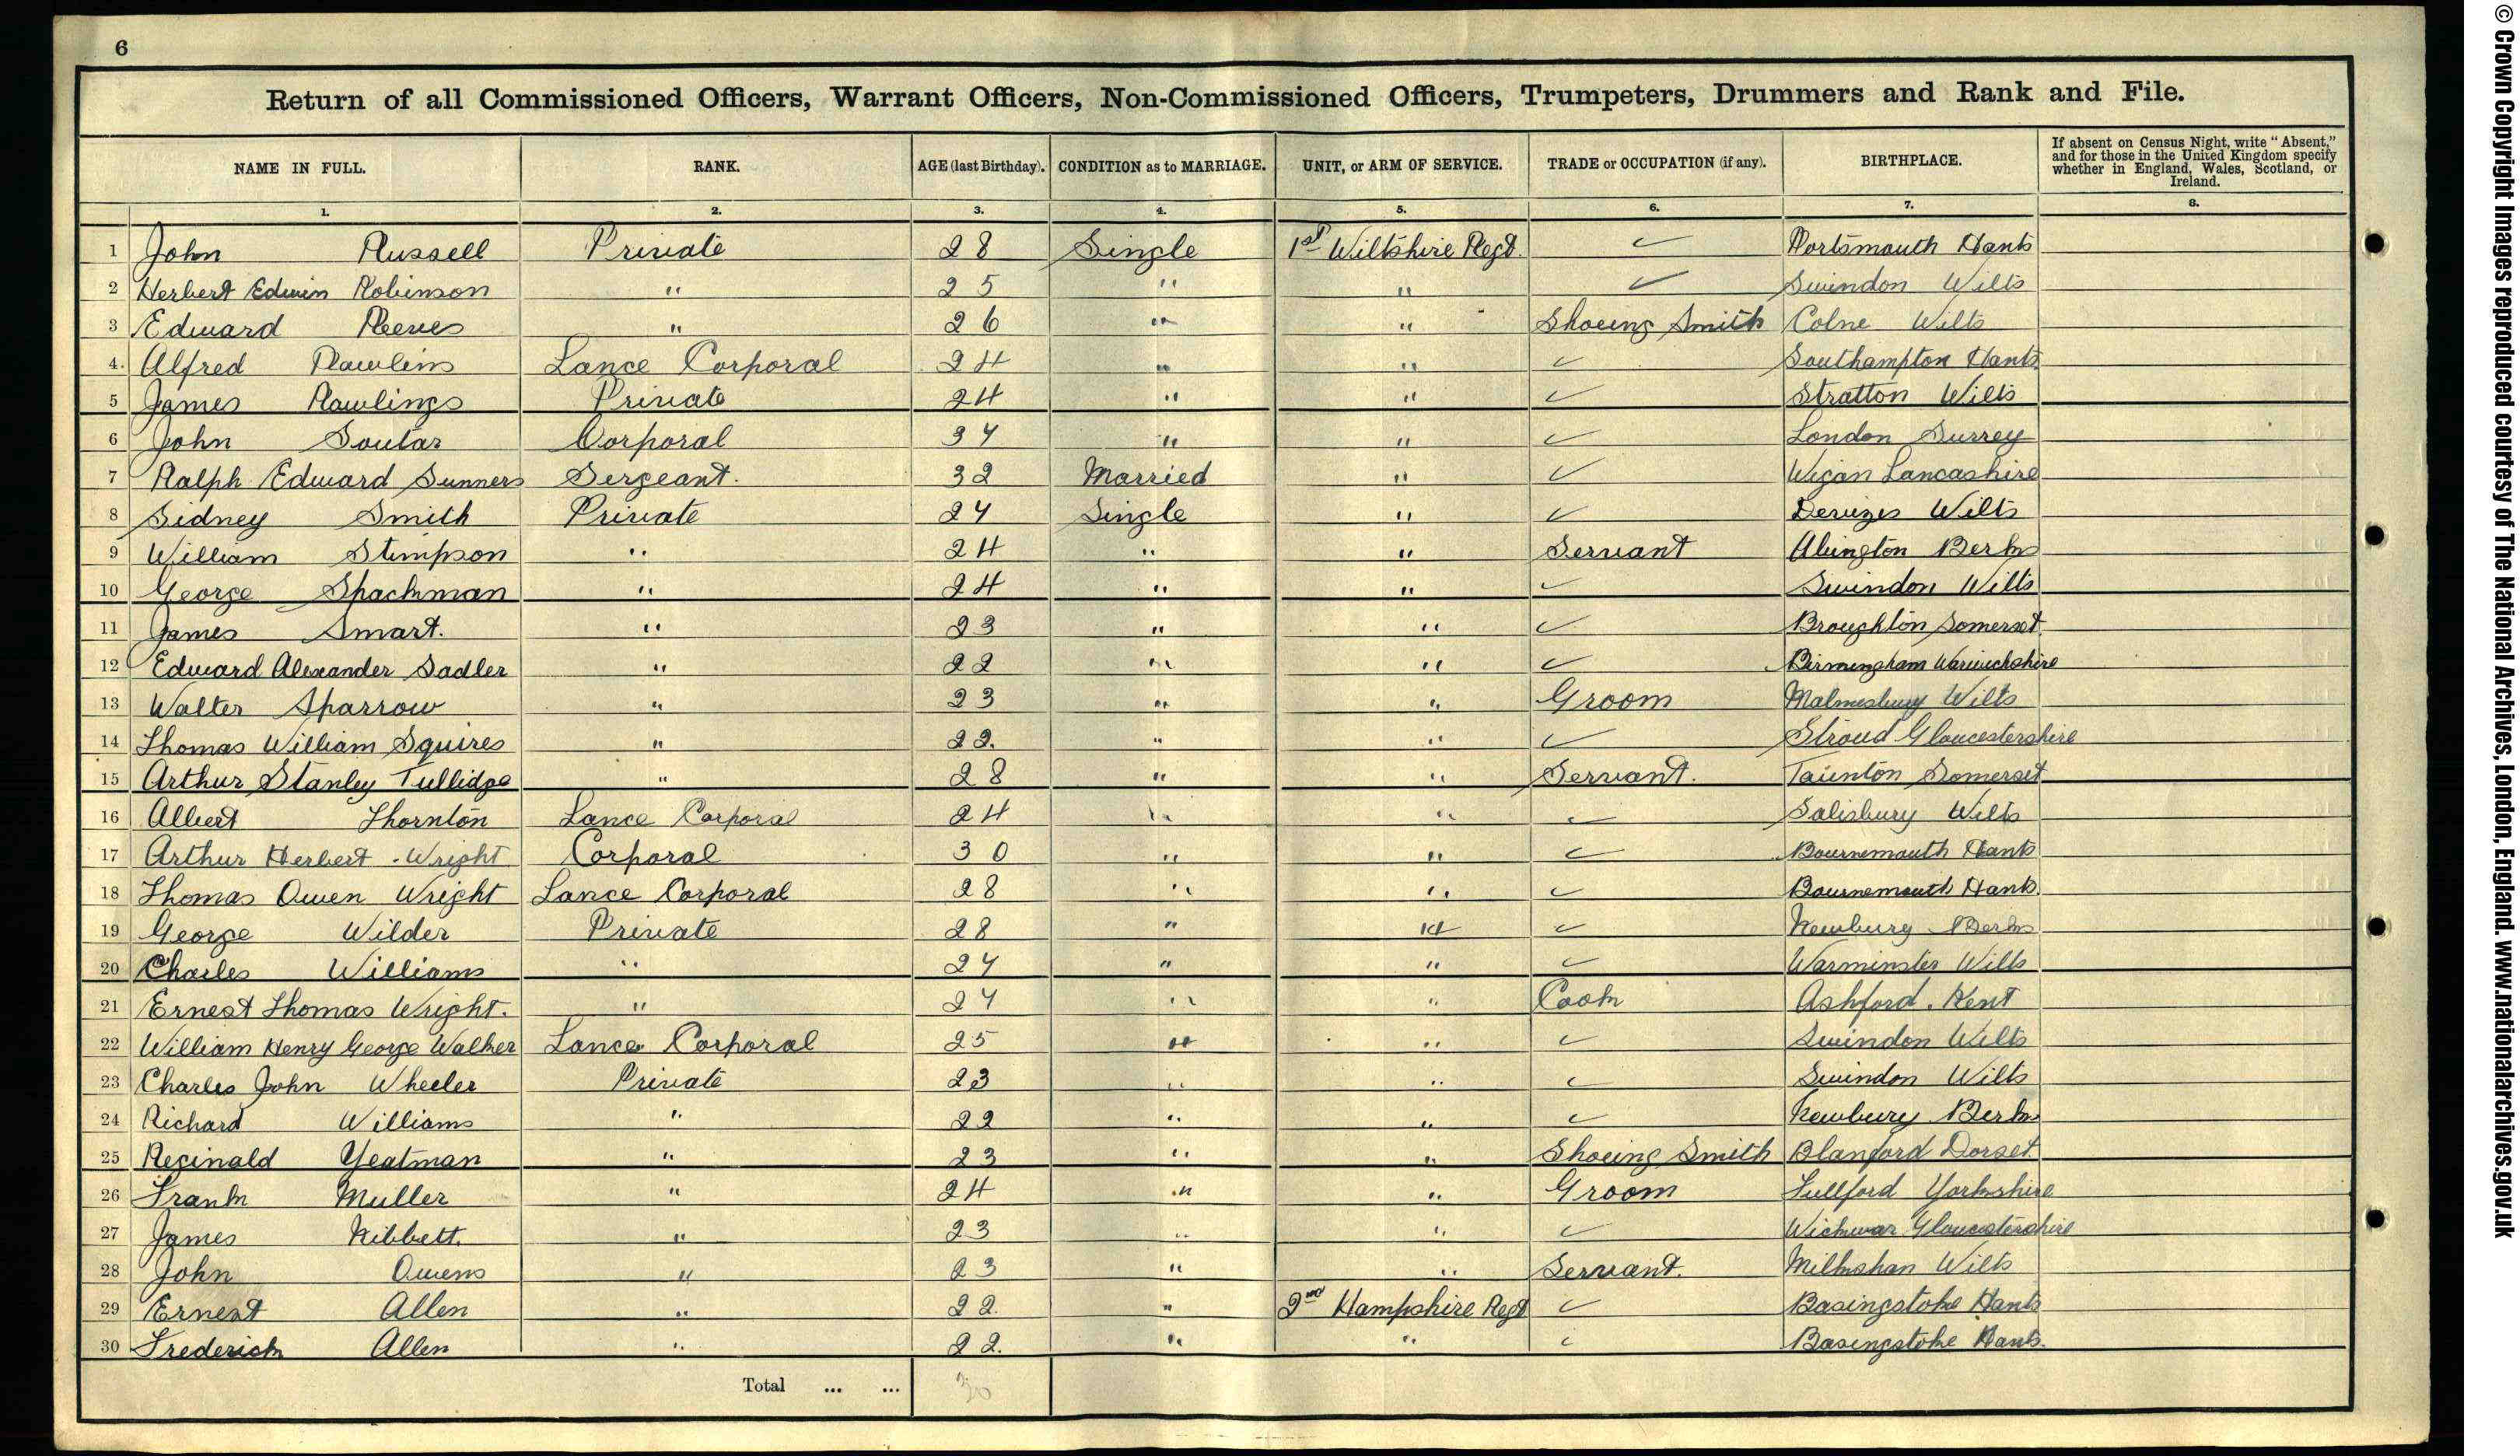 6
Return of all Commissioned Officers, Warrant Officers, Non-Commissioned Officers, Trumpeters, Drummers and Rank and File.
NAME IN FULL. RANK. AGE (last Birthday). CONDITION as to MARRIAGE. UNIT, or ARM OF SERVICE. TRADE or OCCUPATION (if any). BIRTHPLACE. If absent on Census Night, write "Absent," and for those in the United Kingdom specify whether in England, Wales, Scotland, or Ireland.
1. 2. 3. 4. 5. 6. 7. 8.
1 John Russell Private 28 Single 1st Wiltshire Regt. ✓ Portsmouth Hants
2 Herbert Edwin Robinson " 25 " " ✓ Swindon Wilts
3 Edward Reeves " 26 " " Shoeing Smith Colne Wilts
4 Alfred Rawlins Lance Corporal 24 " " ✓ Southampton Hants
5 James Rawlings Private 24 " " ✓ Stratton Wilts
6 John Soutar Corporal 37 " " ✓ London Surrey
7 Ralph Edward Sunners Sergeant. 32 Married " ✓ Wigan Lancashire
8 Sidney Smith Private 27 Single " ✓ Devizes Wilts
9 William Stimpson " 24 " " Servant Abington Berks
10 George Spackman " 24 " " ✓ Swindon Wilts
11 James Smart. " 23 " " ✓ Broughton Somerset
12 Edward Alexander Sadler " 22 " " ✓ Birmingham Warwickshire
13 Walter Sparrow " 23 " " Groom Malmesbury Wilts
14 Thomas William Squires " 22. " " ✓ Stroud Gloucestershire
15 Arthur Stanley Tullidge " 28 " " Servant. Taunton Somerset
16 Albert Thornton Lance Corporal 24 " " ✓ Salisbury Wilts
17 Arthur Herbert Wright Corporal 30 " " ✓ Bournemouth Hants
18 Thomas Owen Wright Lance Corporal 28 " " ✓ Bournemouth Hants.
19 George Wilder Private 28 " " ✓ Newbury Berks
20 Charles Williams " 27 " " ✓ Warminster Wilts
21 Ernest Thomas Wright. " 27 " " Cook Ashford. Kent
22 William Henry George Walker Lance Corporal 25 " " ✓ Swindon Wilts
23 Charles John Wheeler Private 23 " " ✓ Swindon Wilts
24 Richard Williams " 22 " " ✓ Newbury Berks
25 Reginald Yeatman " 23 " " Shoeing Smith Blanford Dorset.
26 Frank Muller " 24 " " Groom Fullford Yorkshire
27 James Nibbett. " 23 " " ✓ Wickwar Gloucestershire
28 John Owens " 23 " " Servant. Milkshan Wilts
29 Ernest Allen " 22. " 2nd Hampshire Regt ✓ Basingstoke Hants
30 Frederick Allen " 22. " " ✓ Basingstoke Hants.
Total ... ... 30
© Crown Copyright Images reproduced courtesy of The National Archives, London, England. www.nationalarchives.gov.uk